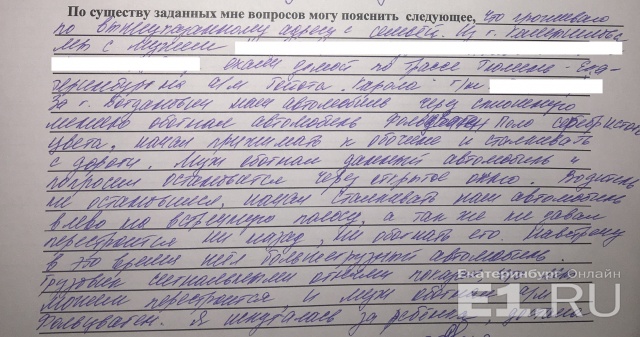 По существу заданных мне вопросов могу пояснить следующее, что проживаю
по вышеуказанному адресу с семьей. Из г.
мы с мужем
ехали домой по трассе Тюмень - Ека-
теринбург на а/м Тойота Карола г/н
За г. Богданович наш автомобиль через сплошную
обогнал автомобиль Фольцваген Поло серебристого
цвета, начал прижимать к обочине и сталкивать
с дороги. Муж обогнал данный автомобиль и
попросил остановится через открытое окно. Водитель
не остановился, начал сталкивать наш автомобиль
влево на встречную полосу, а так же не давал
перестроится ни назад, ни обогнать его. Навстречу
в это время ехал большегрузный автомобиль.
Грузовик сигнальными огнями показал
можем перестроится и муж обогнал а/м
Фольцваген. Я испугалась за ребенка,
Екатеринбург Онлайн
E1.RU